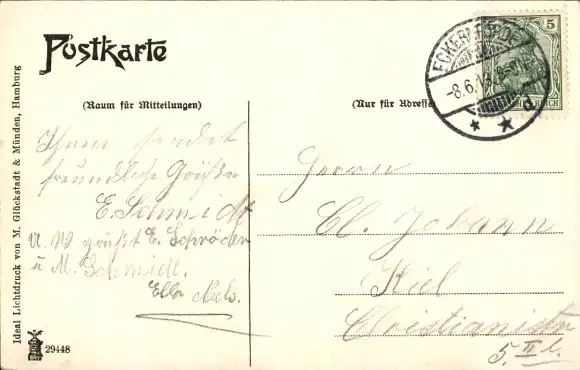 Postkarte
(Raum für Mitteilungen)
(Nur für Adresse
Ihnen sendet
freundliche Grüße
E. Schmidt
u. W grüßt E. Schröder
u M. Schmidt.
Ella
Herrn
Cl. Johann
Kiel
Christianistr
5. II l.
ECKERNFÖRDE
-8.6.13.
5
REICH
Ideal Lichtdruck von M. Glückstadt & Münden, Hamburg
29448